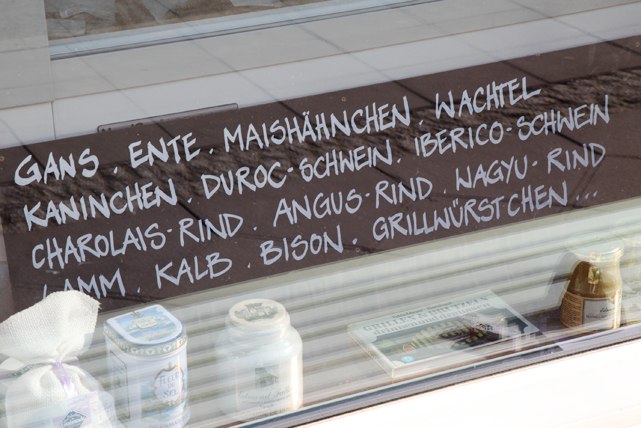 GANS . ENTE . MAISHÄHNCHEN . WACHTEL
KANINCHEN . DUROC-SCHWEIN . IBERICO-SCHWEIN
CHAROLAIS-RIND . ANGUS-RIND . WAGYU-RIND
LAMM . KALB . BISON . GRILLWÜRSTCHEN ...